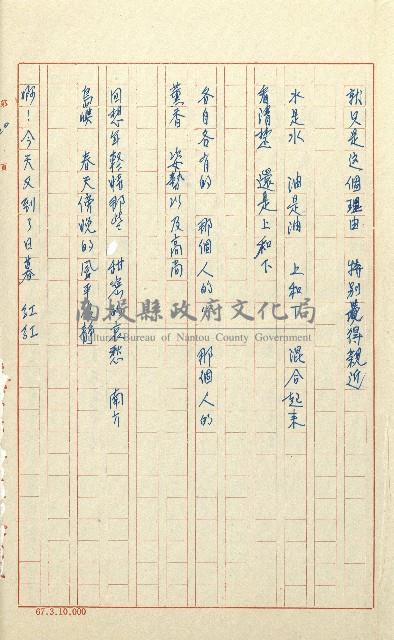 就只是這個理由　特別覺得親近
水是水　油是油　上和下　混合起來
看清楚　還是上和下
各自各有的　那個人的　那個人的
薰香　姿勢以及高尚
回想年輕時那些　甜蜜的哀愁　南方
島嶼　春天傍晚的風平浪靜
啊！今天又到了日暮　紅紅
南投縣政府文化局
Cultural Bureau of Nantou County Government
67.3.10,000